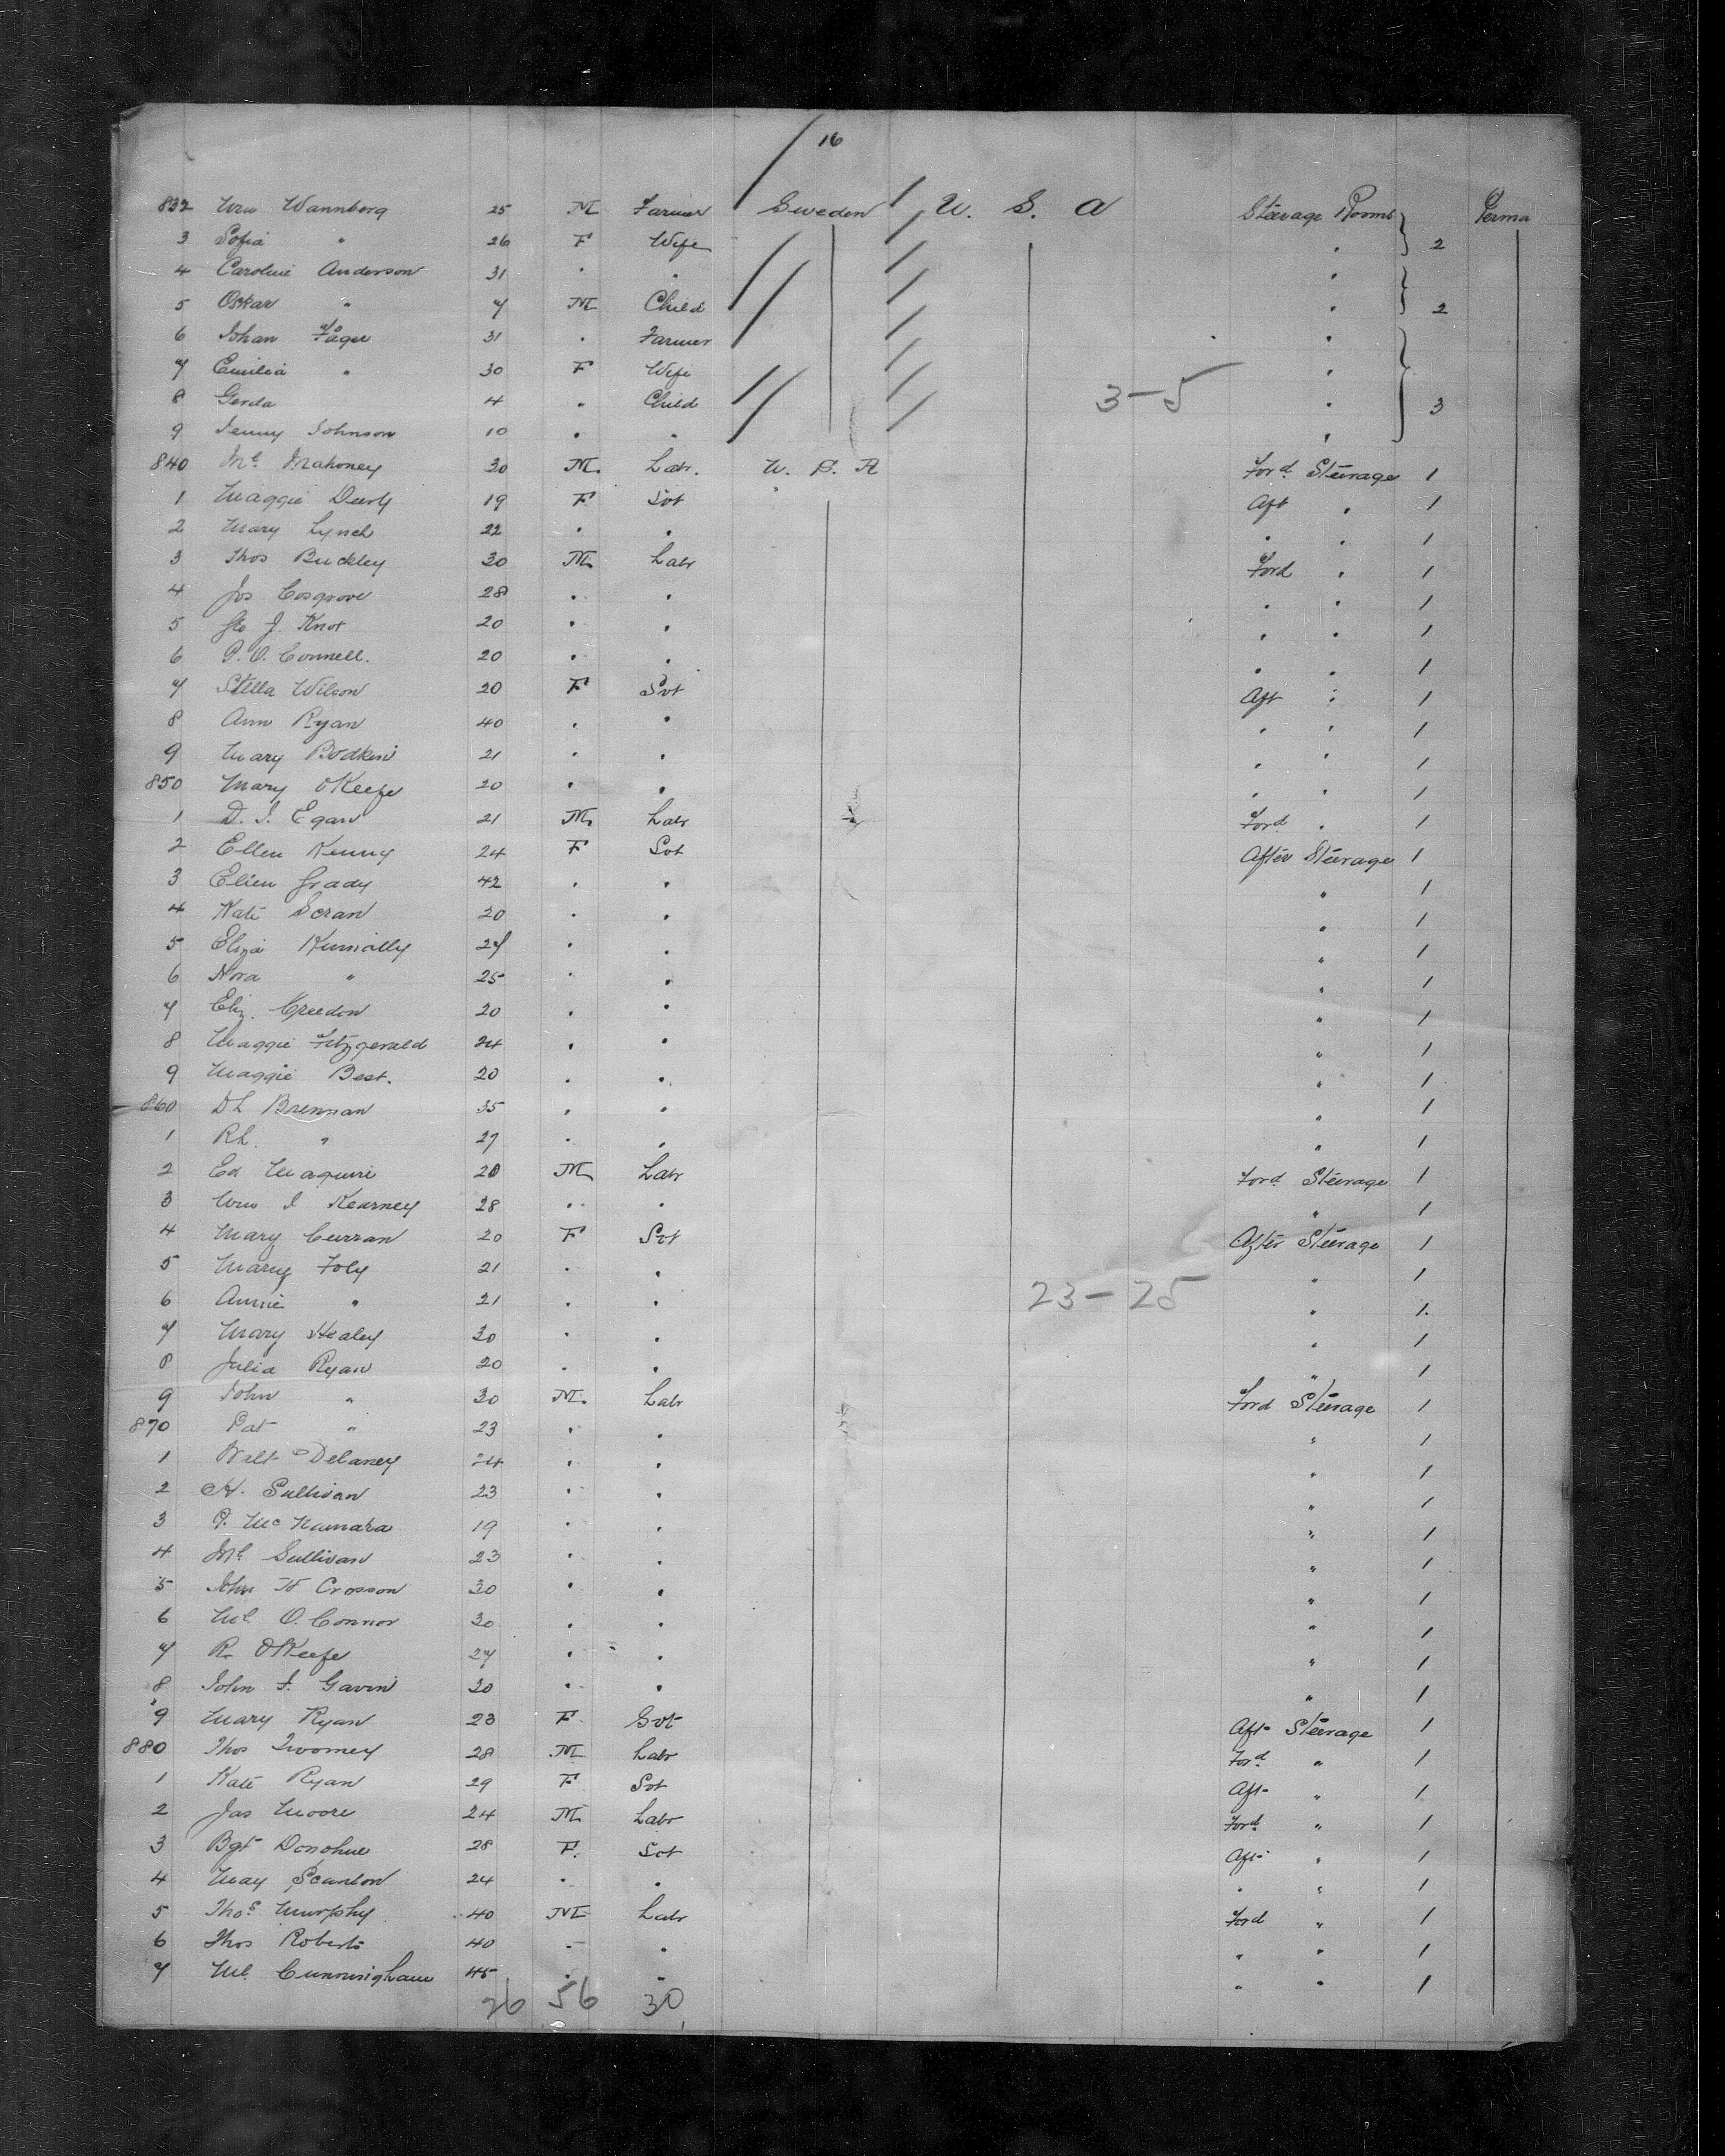 16
832 Wm Wannborg 25 M Farmer Sweden U. S. A Steerage Rooms Perma
3 Sofia " 26 F Wife " 2
4 Caroline Anderson 31 " " "
5 Oskar " 7 M Child " 2
6 Johan Fager 31 " Farmer "
7 Emilia " 30 F Wife "
8 Gerda 4 " Child 3-5 " 3
9 Jenny Johnson 10 " " "
840 Ml Mahoney 30 M Labr. U. S. A Ford Steerage 1
1 Maggie 19 F Svt Aft " 1
2 Mary Lynch 22 " " " " 1
3 Thos Buckley 30 M Labr Ford " 1
4 Jos Cosgrove 28 " " " " 1
5 Geo J. Knot 20 " " " " 1
6 P. O. Connell. 20 " " " " 1
7 Stella Wilson 20 F Svt Aft " 1
8 Ann Ryan 40 " " " " 1
9 Mary Bodkin 21 " " " " 1
850 Mary OKeefe 20 " " " " 1
1 D. J. Egan 21 M Labr Ford " 1
2 Ellen Kenny 24 F Svt After Steerage 1
3 Ellen Grady 42 " " " 1
4 Kate 20 " " " 1
5 Eliza 27 " " " 1
6 Nora " 25 " " " 1
7 Eliz. Creedon 20 " " " 1
8 Maggie Fitzgerald 24 " " " 1
9 Maggie Best. 20 " " " 1
860 DL Brennan 35 " " " 1
1 RL. " 27 " " " 1
2 Ed Maguire 20 M Labr Ford Steerage 1
3 Wm J Kearney 28 " " " 1
4 Mary Curran 20 F Svt After Steerage 1
5 Mary Foly 21 " " " 1
6 Annie " 21 " " 23-25 " 1.
7 Mary Healey 30 " " " 1
8 Julia Ryan 20 " " " 1
9 John " 30 M. Labr Ford Steerage 1
870 Pat " 23 " " " 1
1 Walt Delaney 24 " " " 1
2 H. Sullivan 23 " " " 1
3 P. McNamara 19 " " " 1
4 Ml Sullivan 23 " " " 1
5 John H Crosson 30 " " " 1
6 Ml. O. Connor 30 " " " 1
7 R. OKeefe 27 " " " 1
8 John F. Gavin 30 " " " 1
9 Mary Ryan 23 F Svt Aft Steerage 1
880 Thos Twomey 28 M Labr Ford " 1
1 Kate Ryan 29 F Svt Aft " 1
2 Jas Moore 24 M Labr Ford " 1
3 Bgt Donohue 28 F. Svt Aft " 1
4 May Scanlon 24 " " " " 1
5 Thos Murphy 40 M Labr Ford " 1
6 Thos Roberts 40 " " " " 1
7 Ml. Cunningham 45 " " " " 1
26 56 30